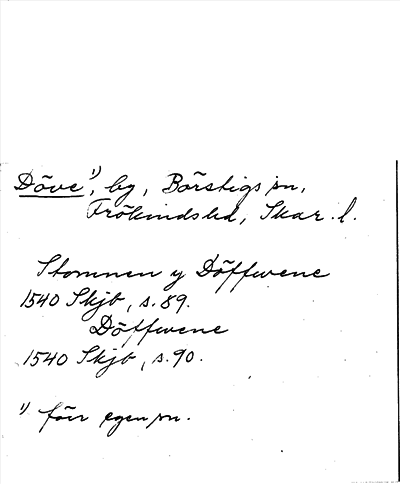 Döve¹⁾, by, Börstigs sn,
Frökindshd, Skar. l.
Stommen y Döffwene
1540 Skjb, s. 89.
Döffwene
1540 Skjb, s. 90.
¹⁾ förr egen sn.